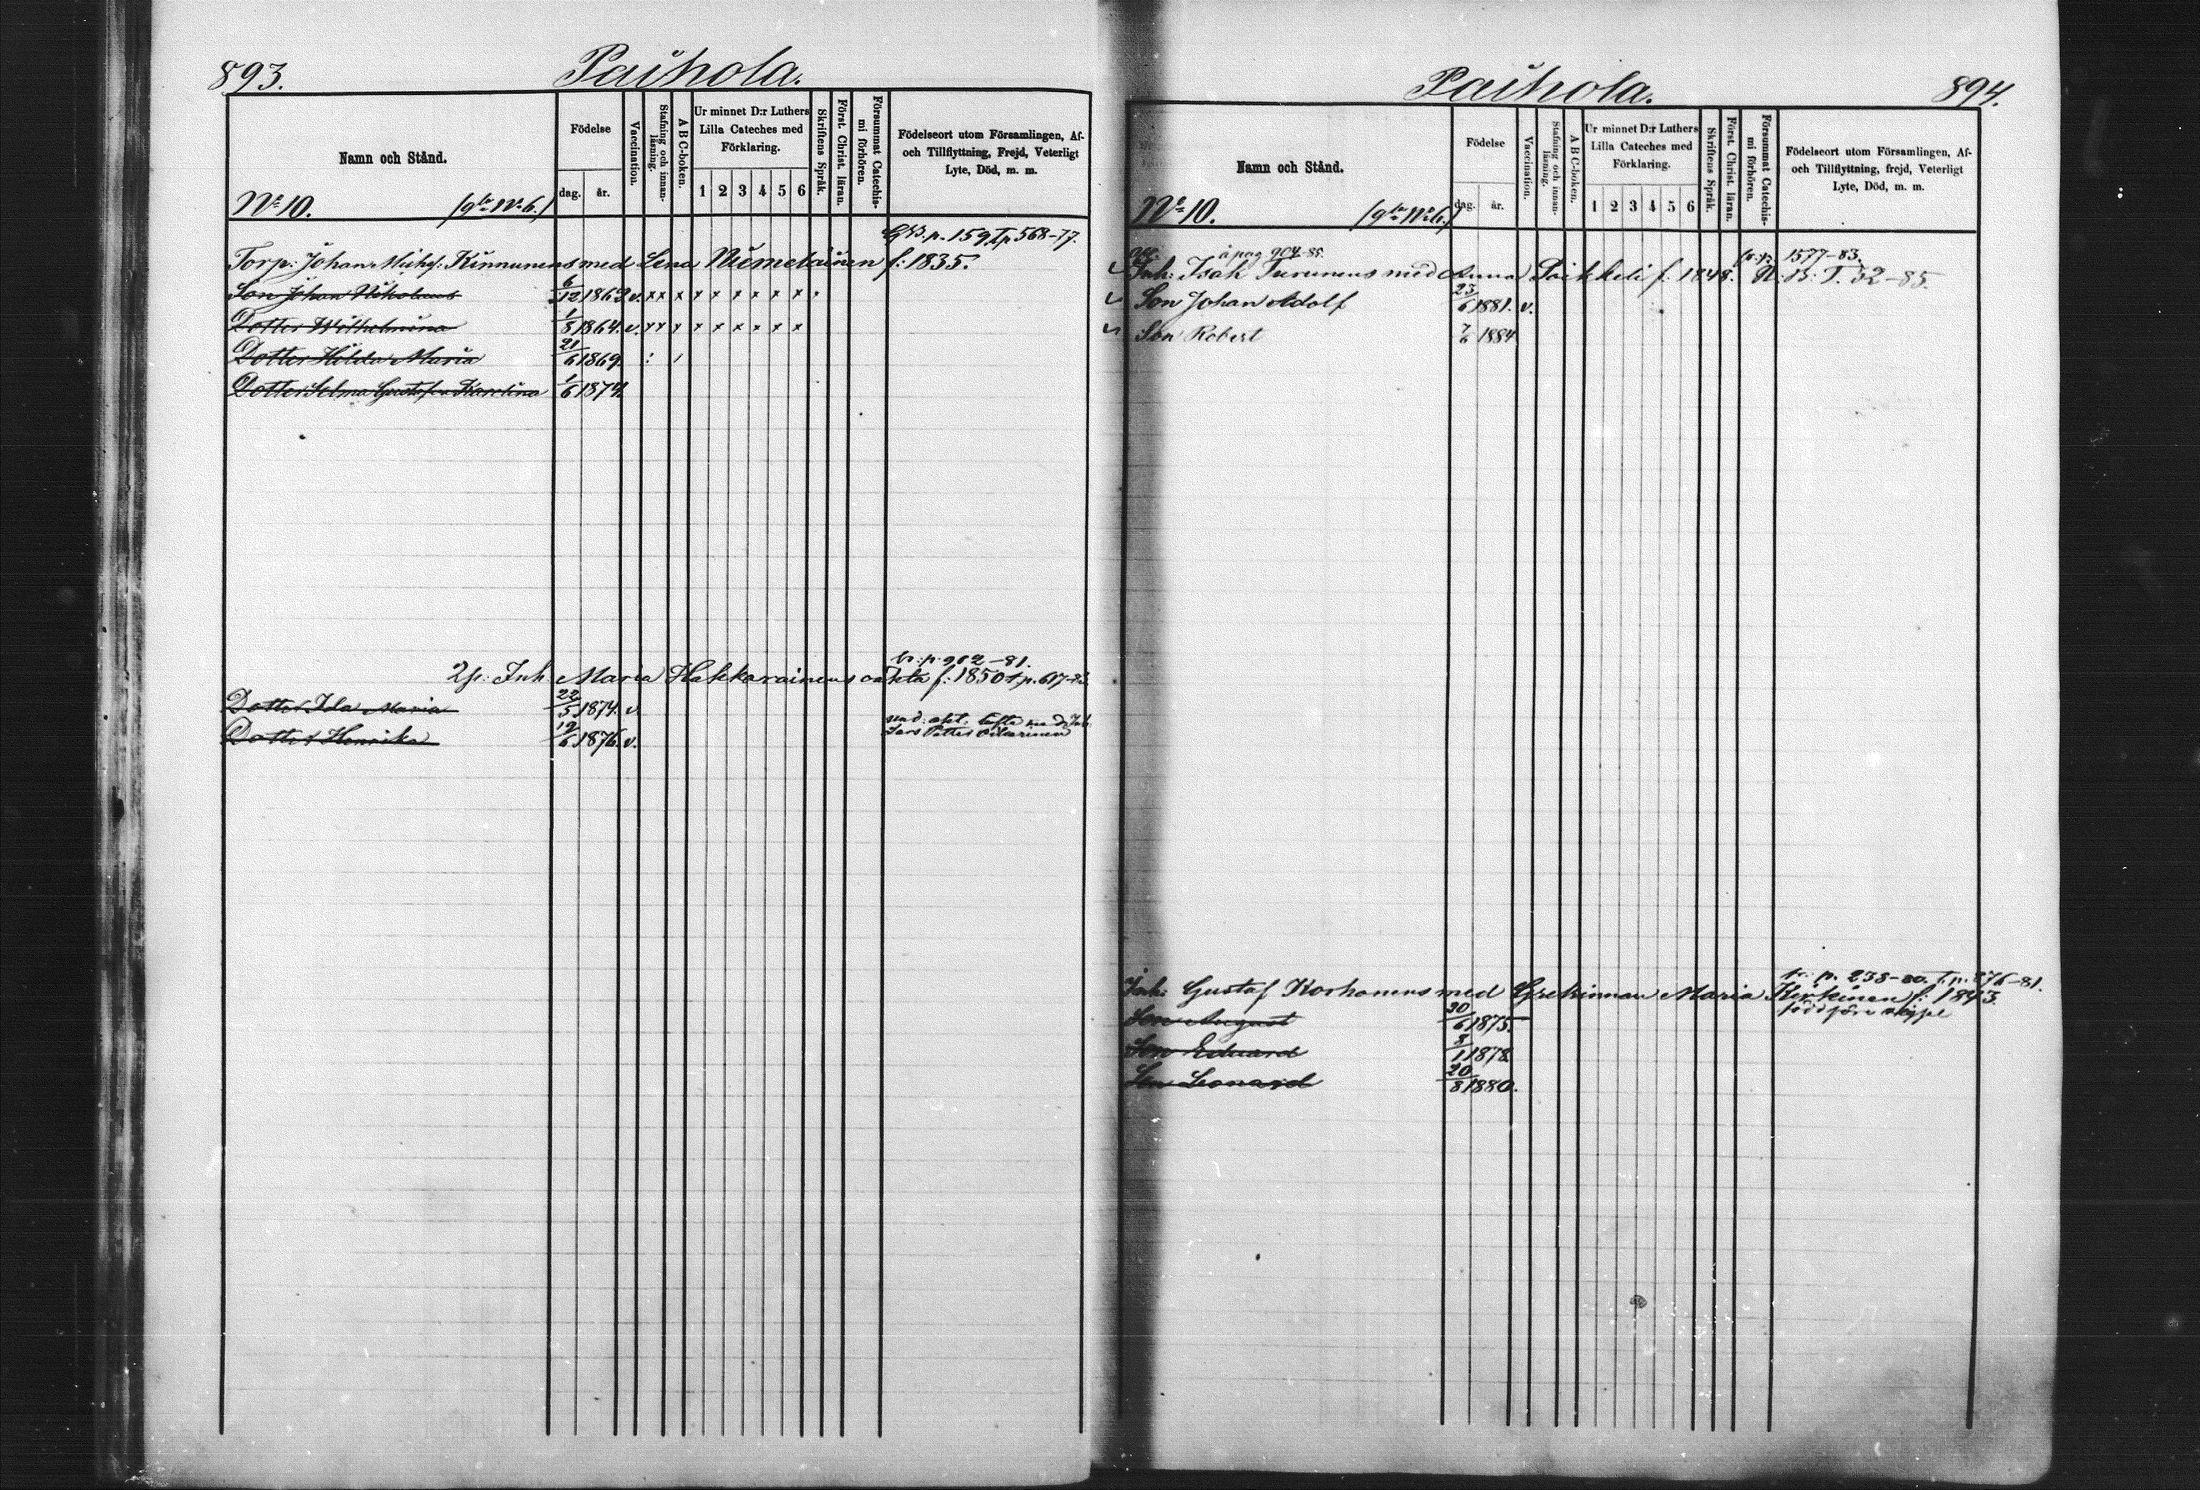 893.
Paihola.
Namn och Stånd.
Födelse
dag.
år.
Vaccination.
Stafning och innan-läsning.
A B C-boken.
Ur minnet D:r Luthers
Lilla Cateches med
Förklaring.
1 2 3 4 5 6
Skriftens Språk.
Först. Christ. läran.
Försummat Catechis-mi förhören.
Födelseort utom Församlingen, Af-
och Tillflyttning, Frejd, Veterligt
Lyte, Död, m. m.
No 10.
p. 159 T p 568-77.
Torp: Johan Kinnunens med Lena f: 1835.
Son Johan Nikolaus 6/12 1862 v. x x x x x x x x x
Dotter Wilhelmina 1/8 1864. v. x x x x x x x x x
Dotter Hilda Maria 21/6 1869.
Dotter Selma Gustafva Karolina 1/6 1874.
fr: p: 902-81.
Inh. Maria Hakkarainens f: 1850 T. p. 617-83.
Dotter Ida Maria 22/5 1874. v.
Dotter Henrika 19/6 1876. v.
Paihola.
894.
Namn och Stånd.
Födelse
dag.
år.
Vaccination.
Stafning och innan-läsning.
A B C-boken.
Ur minnet D:r Luthers
Lilla Cateches med
Förklaring.
1 2 3 4 5 6
Skriftens Språk.
Först. Christ. läran.
Försummat Catechis-mi förhören.
Födelseort utom Församlingen, Af-
och Tillflyttning, frejd, Veterligt
Lyte, Död, m. m.
No 10.
fr: p: 1577-83.
Inh: Isak Turunens med Anna Paikkeli f. 1848. T. 52-85.
Son Johan Adolf 23/6 1881. v.
Son Robert 7/6 1884
fr: p. 238-80. T. p. 376-81.
Inh: Gustaf Korhonens med Maria f: 1843.
Son August 30/6 1875
Son Eduard 8/1 1878
Son Leonard 20/8 1880.